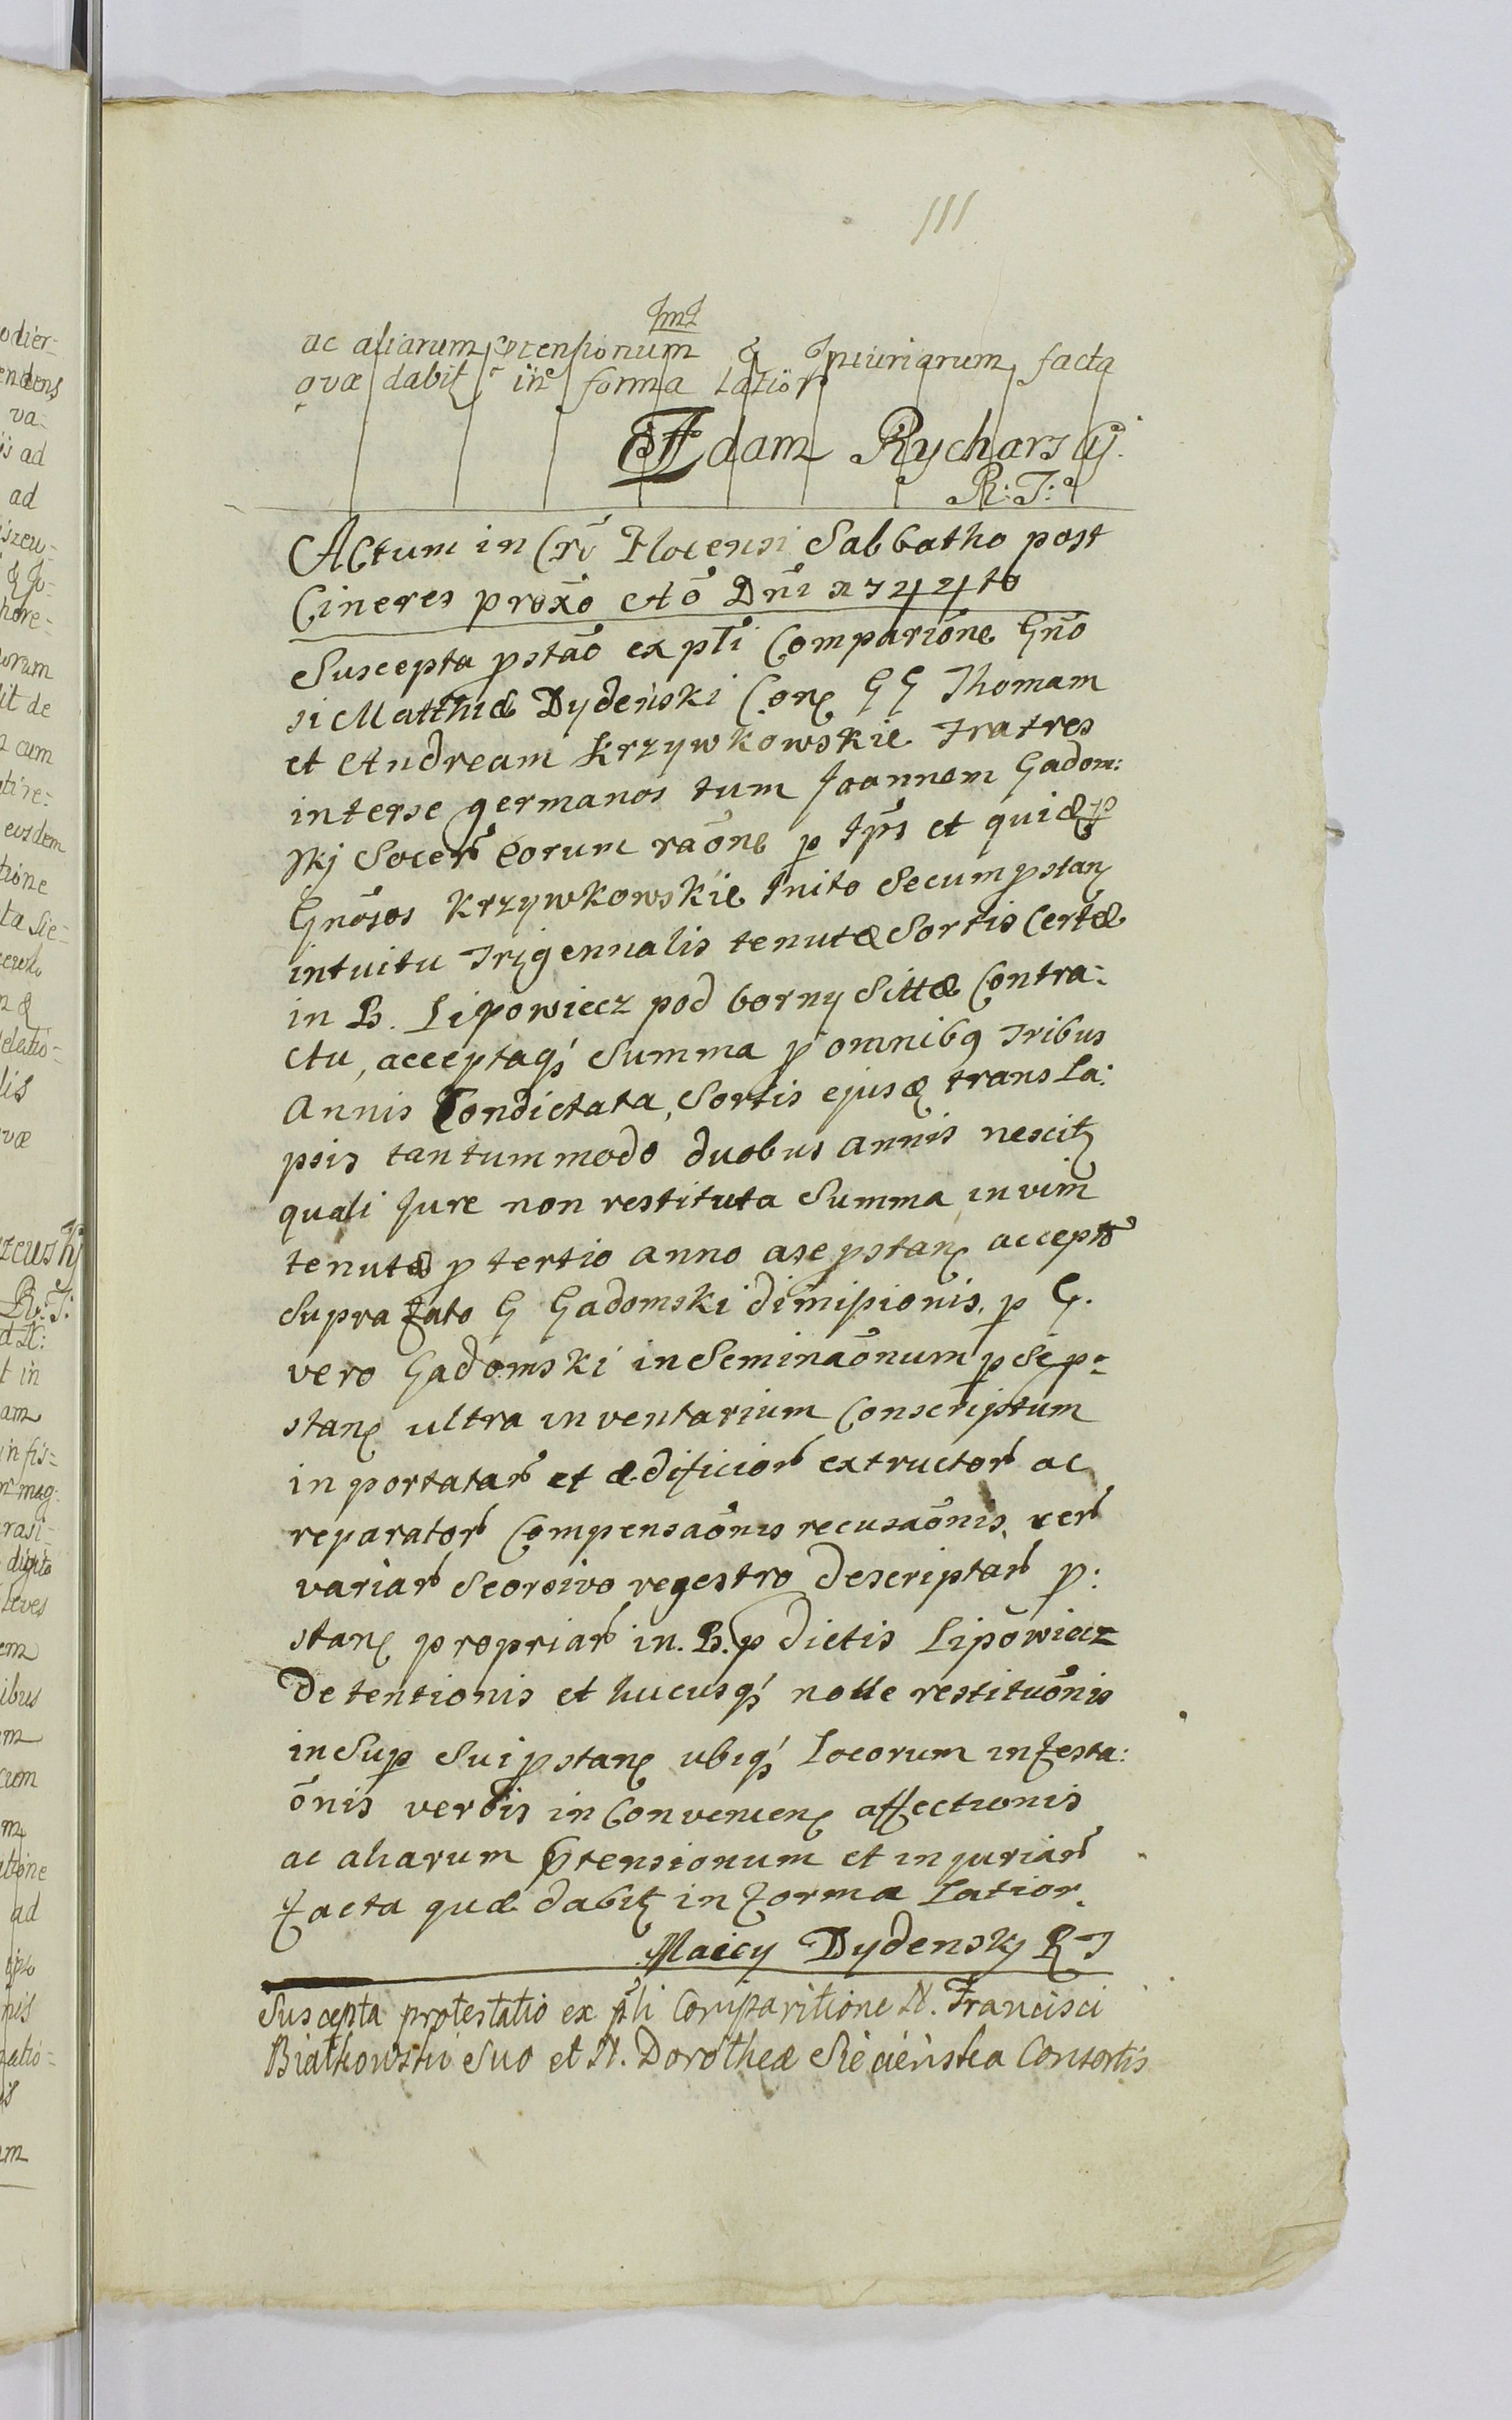 111
Imt
ac aliarum ptensionum & Iniuriarum facta
qvæ dabit in forma latior
Adam Rycharsky
R: T:
Actum in Cru Plocensi Sabbatho post
Cineres proxo Ao Dni 1744to
Suscepta pstao ex pli Comparione Gno
si Matthiæ Dydeński Con GG Thomam
et Andream Krzywkowskie Fratres
interse germanos tum Joannem Gadom:
skj Socer eorum raone p Ips et quidē p
Gnosos Krzywkowskie Inito Secum pstan
intuitu Trigennalis tenutæ Sortis Certæ
in B. Lipowiecz pod borny Sittæ Contra:
ctu, acceptaq Summa p omnibq Tribus
Annis Condictata, Sortis ejusd transla:
psis tantummodo duobus annis nescit
quali Jure non restituta Summa in vim
tenutæ p tertio anno a se pstan accepto
Supra fato G Gadomski dimissionis, p G.
vero Gadomski inSeminaonum p Se p=
stan ultra inventarium Conscriptum
inportatar et ædificior extructor ac
reparator Compensaonis recusaonis, rer
variar Seorsivo regestro descriptar p:
stan propriar in. B. p dictis Lipowiecz
Detentionis et hucusq nolle restituonis
inSup Sui pstan ubiq Locorum infesta:
onis verbis inConvenien affectionis
ac aliarum ptensionum et injuriar
facta quæ dabit in forma Latior.
Maicy Dydensky R T
Suscepta protestatio ex pli Comparitione N. Francisci
Białkowski Suo et N. Dorotheæ Siecieńska Consortis